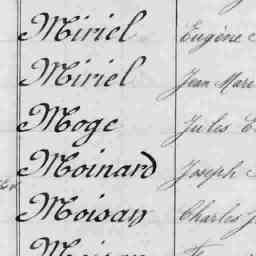 Miriel Eugène
Miriel Jean Marie
Moge Jules E
Moinard Joseph
Moisan Charles J